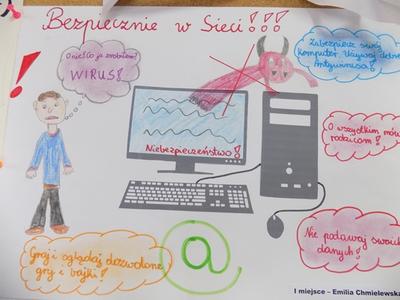 Bezpiecznie w Sieci!!!
O nie! Co ja zrobiłem?
WIRUS!
Zabezpiecz swój
komputer. Używaj dobrego
Antywirusa!
O wszystkim mów
rodzicom!
Niebezpieczeństwo!
Nie podawaj swoich
danych!
Graj i oglądaj dozwolone
gry i bajki!
@
I miejsce – Emilia Chmielewska